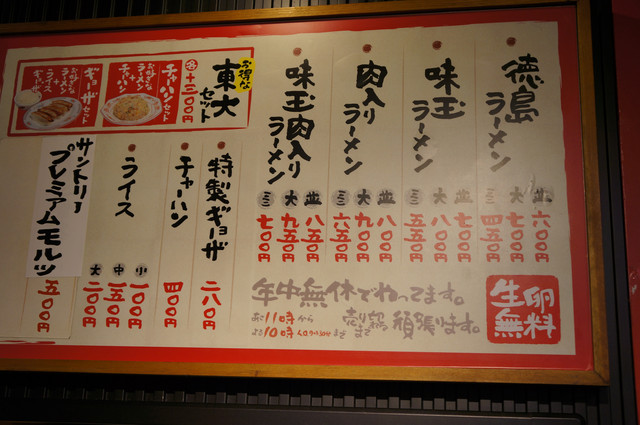 徳島ラーメン
並 六〇〇円
大 七〇〇円
ミニ 四五〇円
味玉ラーメン
並 七〇〇円
大 八〇〇円
ミニ 五五〇円
肉入りラーメン
並 八〇〇円
大 九〇〇円
ミニ 六五〇円
味玉肉入りラーメン
並 八五〇円
大 九五〇円
ミニ 七〇〇円
お得な
東大セット
各+三〇〇円
チャーハンセット
お好きなラーメン+チャーハン
ギョーザセット
お好きなラーメン+ライス+ギョーザ
特製ギョーザ
二六〇円
チャーハン
四〇〇円
ライス
小 一〇〇円
中 一五〇円
大 二〇〇円
サントリープレミアムモルツ
五〇〇円
年中無休でねってます。
あさ11時から
よる10時
まで
売り切れるまで
頑張ります。
生卵無料